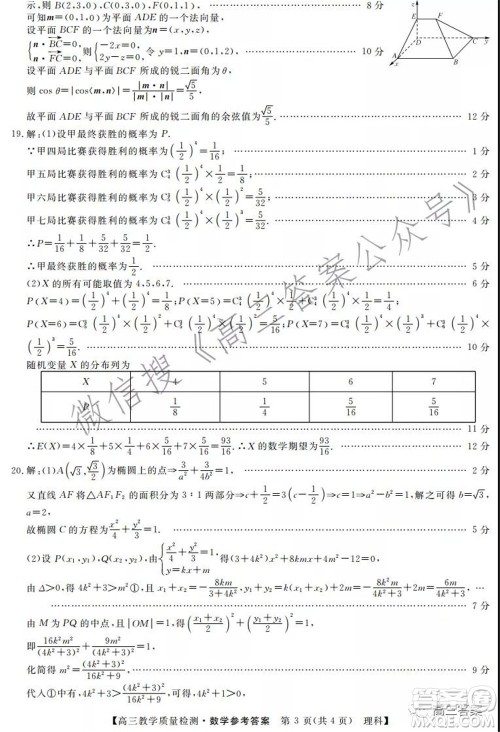 示,则 B(2,3,0),C(0,3,0), …… 8 分
可知 m=(0,1,0)为平面 ADE 的一个法向量,
设平面 BCF 的一个法向量为 n=(x,y,z),
{n·BC=0, n·FC=0, 则{-2x=0, 令 y=1,n=(0,1,2), …… 10 分
设平面 ADE 与平面 BCF 所成的锐二面角为 θ,
则 cos θ=|cos⟨m,n⟩|=|m·n|/|m||n|=√5/5,
故平面 ADE 与平面 BCF 所成的锐二面角的余弦值为√5/5. …… 12 分
19.解:(1)设甲最终获胜的概率为 P.
∵甲四局比赛获得胜利的概率为(1/2)^4=1/16; …… 1 分
甲五局比赛获得胜利的概率为 (1/2)^4×1/2=1/8; …… 2 分
甲六局比赛获得胜利的概率为 (1/2)^4×(1/2)^2=5/32; …… 3 分
甲七局比赛获得胜利的概率为 (1/2)^4×(1/2)^3=5/32. …… 4 分
∴P=1/16+1/8+5/32+5/32=1/2.
∴甲最终获胜的概率为1/2. …… 5 分
(2)X 的所有可能取值为 4,5,6,7. …… 6 分
P(X=4)=(1/2)^4+(1/2)^4=1/8;P(X=5)= (1/2)^4×1/2+ (1/2)^4×1/2=1/4;
P(X=6)= (1/2)^4×(1/2)^2+ (1/2)^4×(1/2)^2=5/16;P(X=7)= (1/2)^4×(1/2)^3+ (1/2)^4×
(1/2)^3=5/16. …… 10 分
随机变量 X 的分布列为
X 4 5 6 7
P 1/8 1/4 5/16 5/16
…… 11 分
∴E(X)=4×1/8+5×1/4+6×5/16+7×5/16=93/16.∴X 的数学期望为93/16. …… 12 分
20.解:(1)A(√3,√3/2)为椭圆上的点⇒3/a²+3/4b²=1, …… 2 分
又直线 AF 将△AF₁F₂ 的面积分为 3∶1 两部分⇒c+1/2=3(c-1/2)⇒c=1⇒a²-b²=1,解之可得 b=√3,
a=2,
故椭圆 C 的方程为x²/4+y²/3=1. …… 5 分
(2)设 P(x₁,y₁),Q(x₂,y₂),由{x²/4+y²/3=1, y=kx+m 得(3+4k²)x²+8kmx+4m²-12=0,
由 Δ>0,得 4k²+3>m²①,且 x₁+x₂=-8km/4k²+3,y₁+y₂=k(x₁+x₂)+2m=-8mk²/4k²+3+2m=6m/4k²+3,
…… 7 分
由 M 为 PQ 的中点,且|OM|=1,得(x₁+x₂/2)²+(y₁+y₂/2)²=1,
即16k²m²/(4k²+3)²+9m²/(4k²+3)²=1,
化简得 m²=(4k²+3)²/16k²+9,
代入①中有,得(4k²+3)²/16k²+9
【高三教学质量检测·数学参考答案 第 3 页(共 4 页) 理科】
微信搜《高三答案公众号》
高三答案